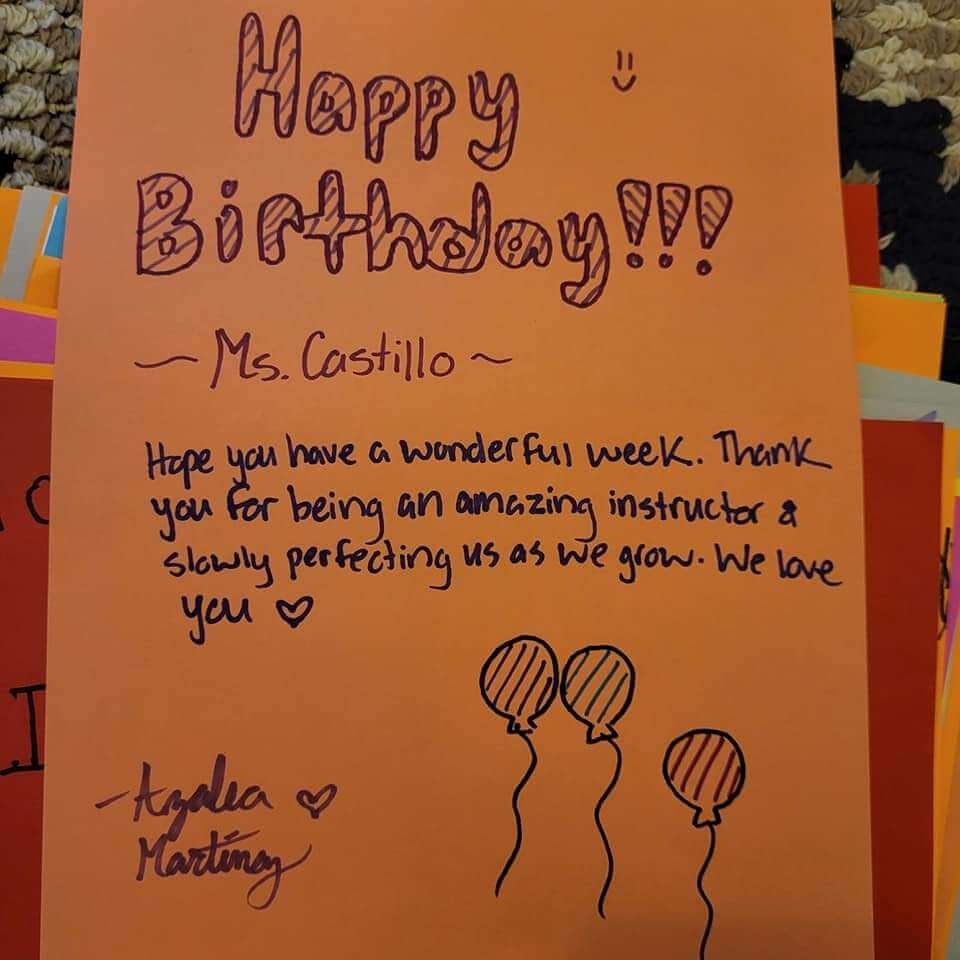 Happy
Birthday!!!
~ Ms. Castillo ~
Hope you have a wonderful week. Thank
you for being an amazing instructor &
slowly perfecting us as we grow. We love
you ♡
- Azalea ♡
Martínez